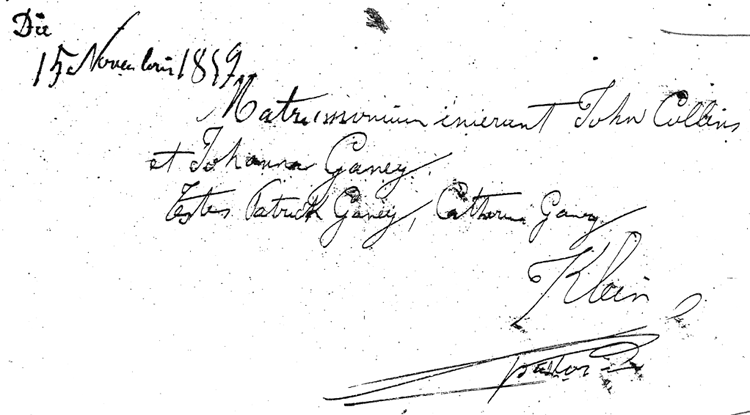 Die
15 Novembris 1859
Matrimonium inierunt John Collins
et Johanna Ganey.
Testes Patrick Ganey, Catherine Ganey
Klein
pastor